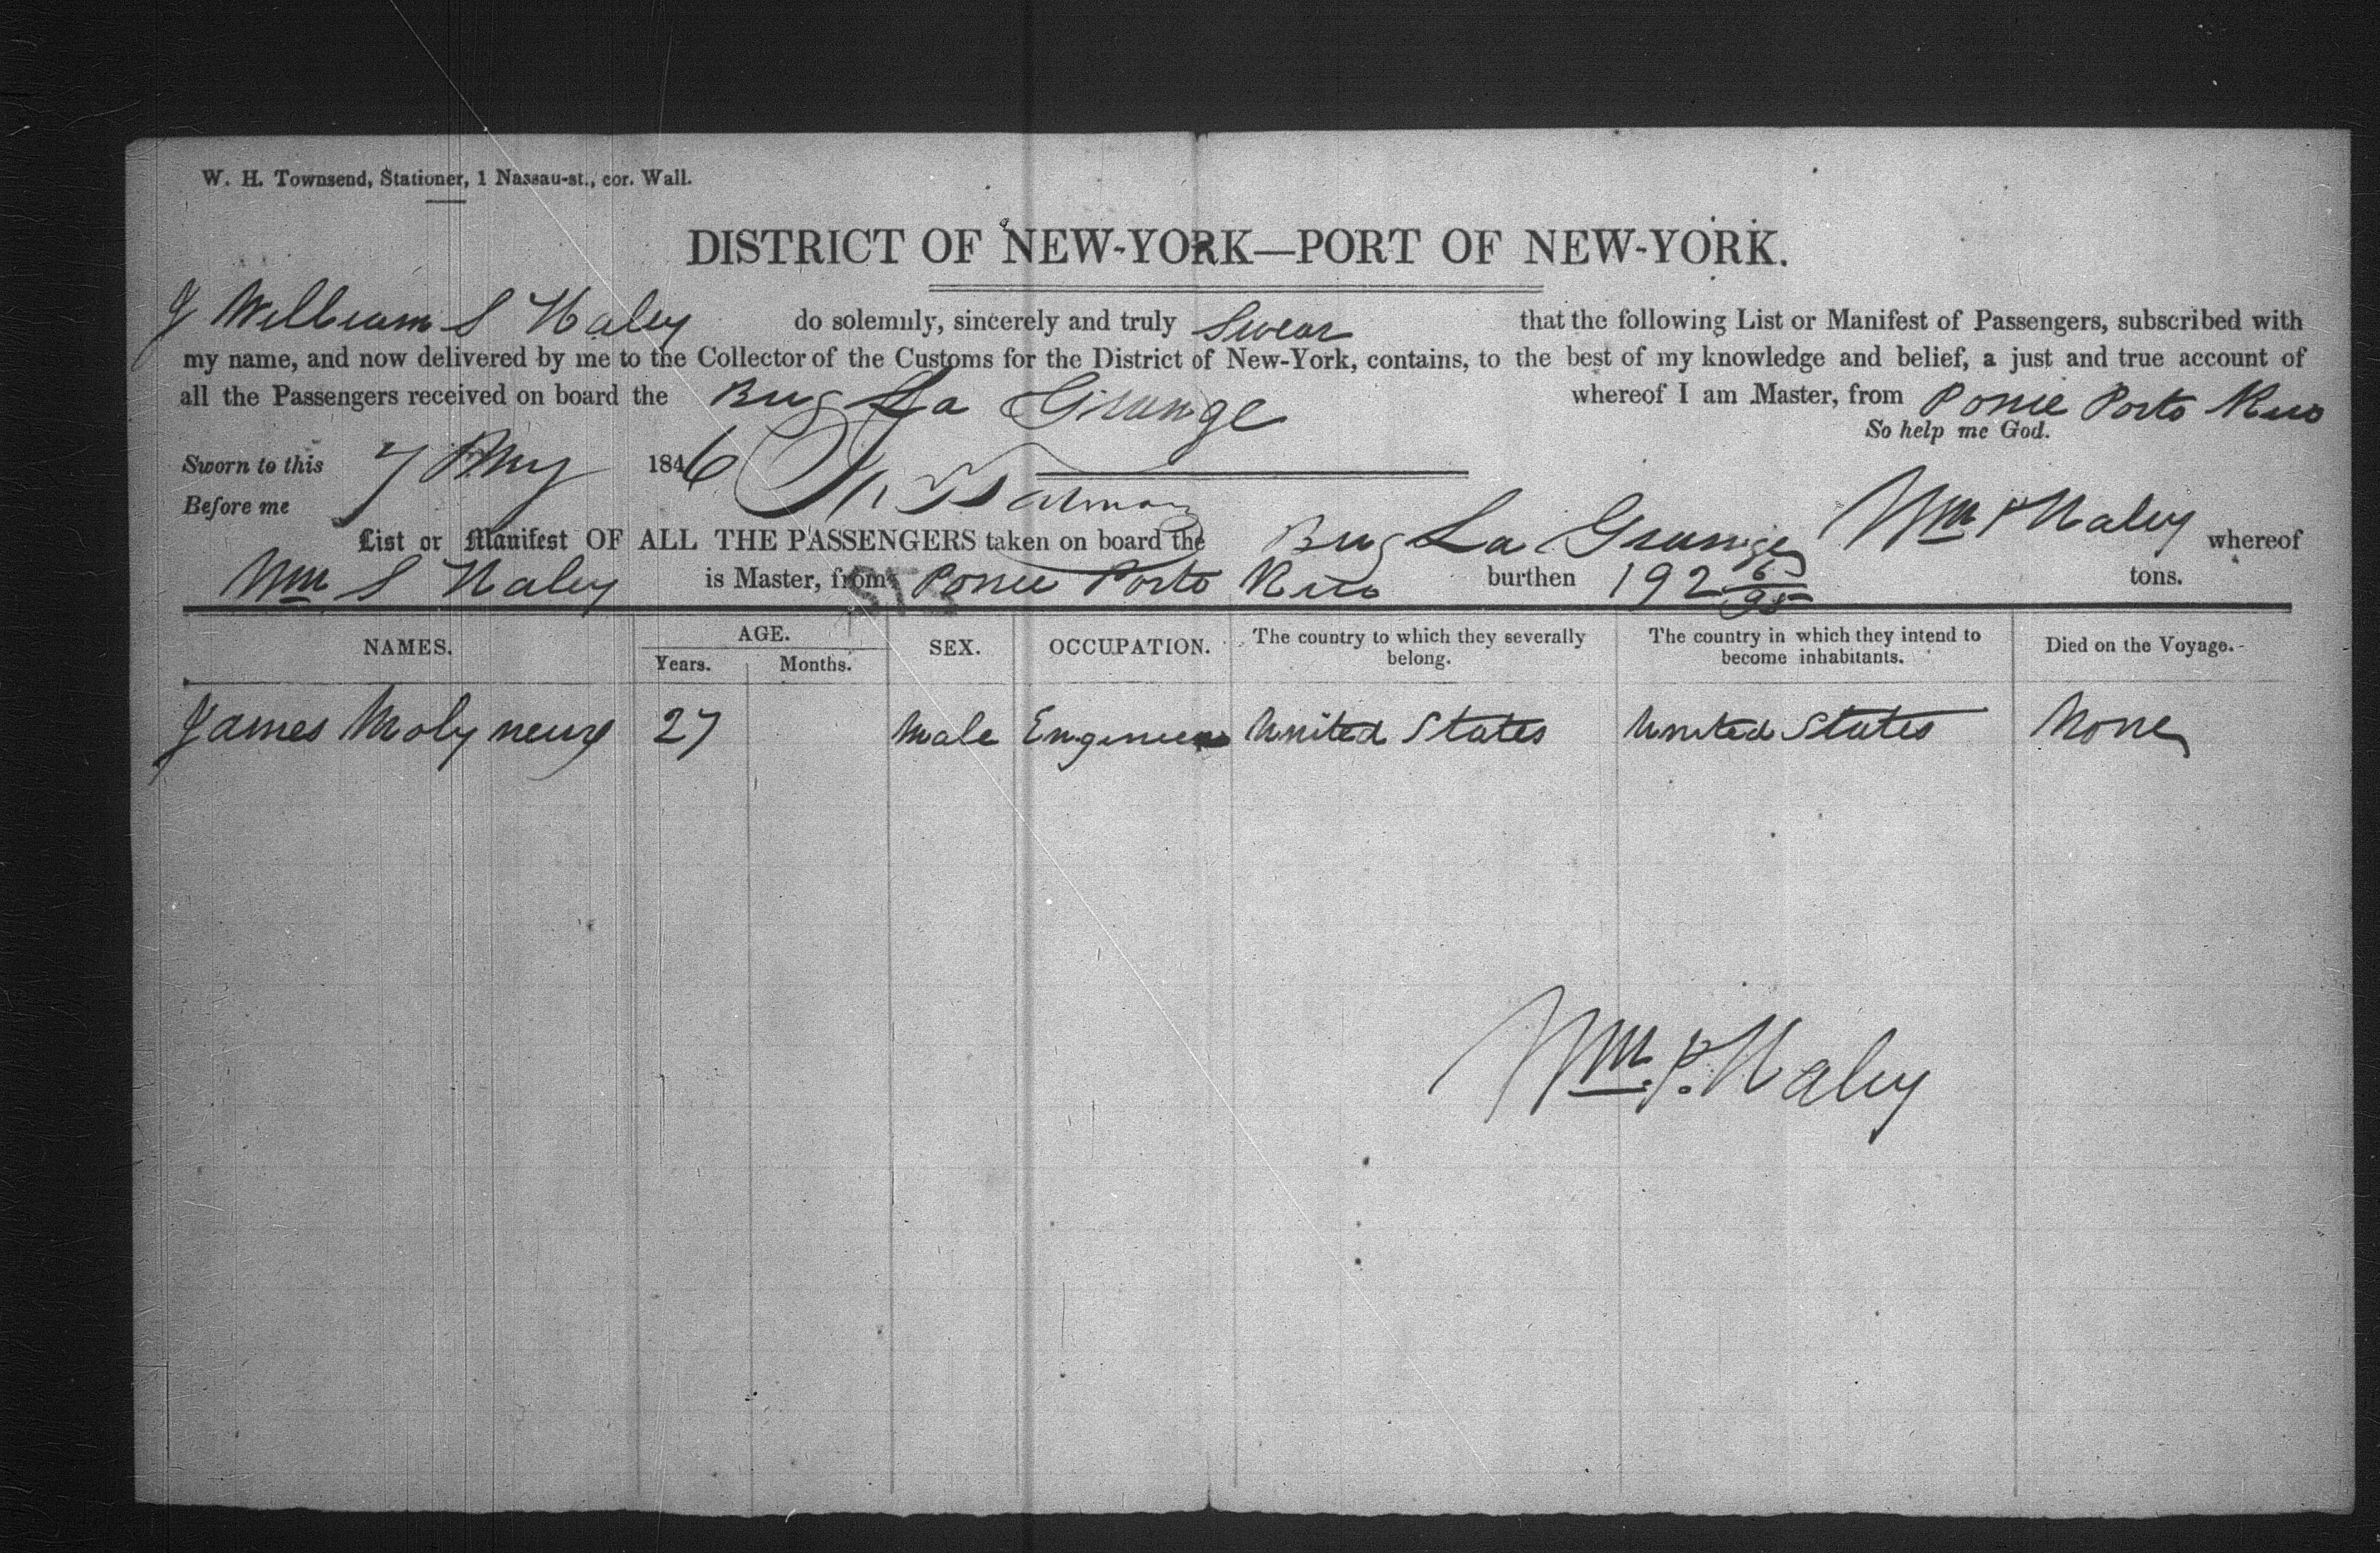 W. H. Townsend, Stationer, 1 Nassau-st., cor. Wall.
DISTRICT OF NEW-YORK—PORT OF NEW-YORK.
I William S Haley do solemnly, sincerely and truly Swear that the following List or Manifest of Passengers, subscribed with
my name, and now delivered by me to the Collector of the Customs for the District of New-York, contains, to the best of my knowledge and belief, a just and true account of
all the Passengers received on board the Brig La Grange whereof I am Master, from Ponce Porto Rico
So help me God.
Sworn to this 7 May 1846
Before me
Wm S Haley
List or Manifest OF ALL THE PASSENGERS taken on board the Brig La Grange whereof
Wm S Haley is Master, from Ponce Porto Rico burthen 192 6/95 tons.
NAMES. AGE. SEX. OCCUPATION. The country to which they severally belong. The country in which they intend to become inhabitants. Died on the Voyage.
Years. Months.
James Molyneux 27 Male Engineer United States United States None
Wm. S. Haley